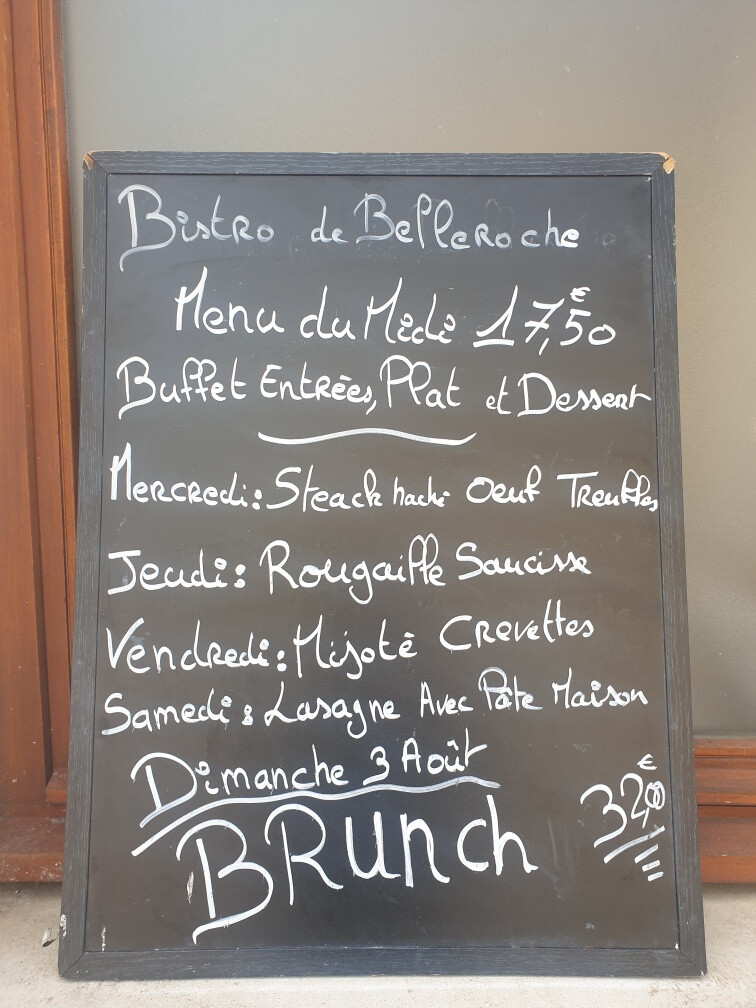 Bistro de Belleroche
Menu du Midi 17,50€
Buffet Entrées, Plat et Dessert
Mercredi: Steack haché Oeuf Treuffes
Jeudi: Rougaille Saucisse
Vendredi: Mijoté Crevettes
Samedi: Lasagne Avec Pâte Maison
Dimanche 3 Août
BRunch 32,00€